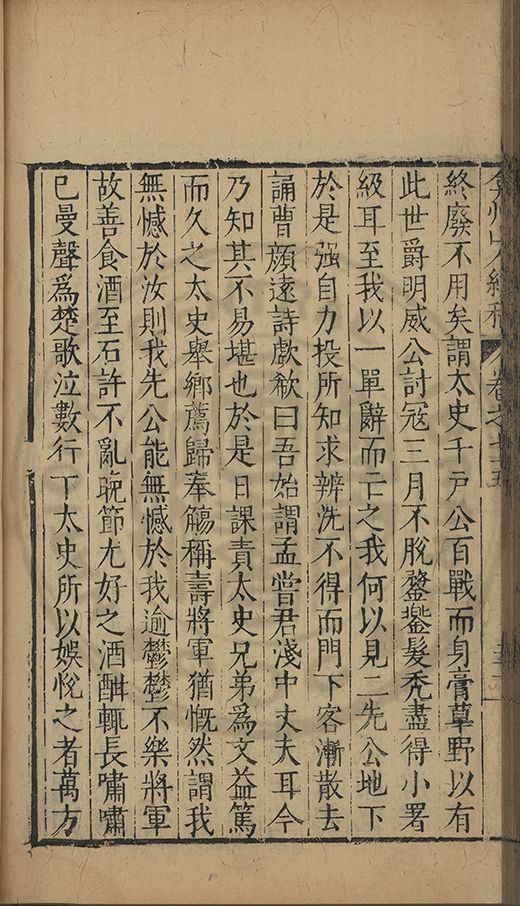 弇州山人續稿 卷之七十五
終廢不用矣謂太史千戶公百戰而身膏草野以有
此世爵明威公討寇三月不脫鍪鎧髮禿盡得小署
級耳至我以一單辭而亡之我何以見二先公地下
於是强自力投所知求辨洗不得而門下客漸散去
誦曹顏遠詩歔欷曰吾始謂孟嘗君淺中丈夫耳今
乃知其不易堪也於是日課責太史兄弟爲文益篤
而久之太史舉鄉薦歸奉觴稱壽將軍猶慨然謂我
無憾於汝則我先公能無憾於我逾鬱鬱不樂將軍
故善食酒至石許不亂晚節尤好之酒酣輒長嘯嘯
已曼聲爲楚歌泣數行下太史所以娛悅之者萬方